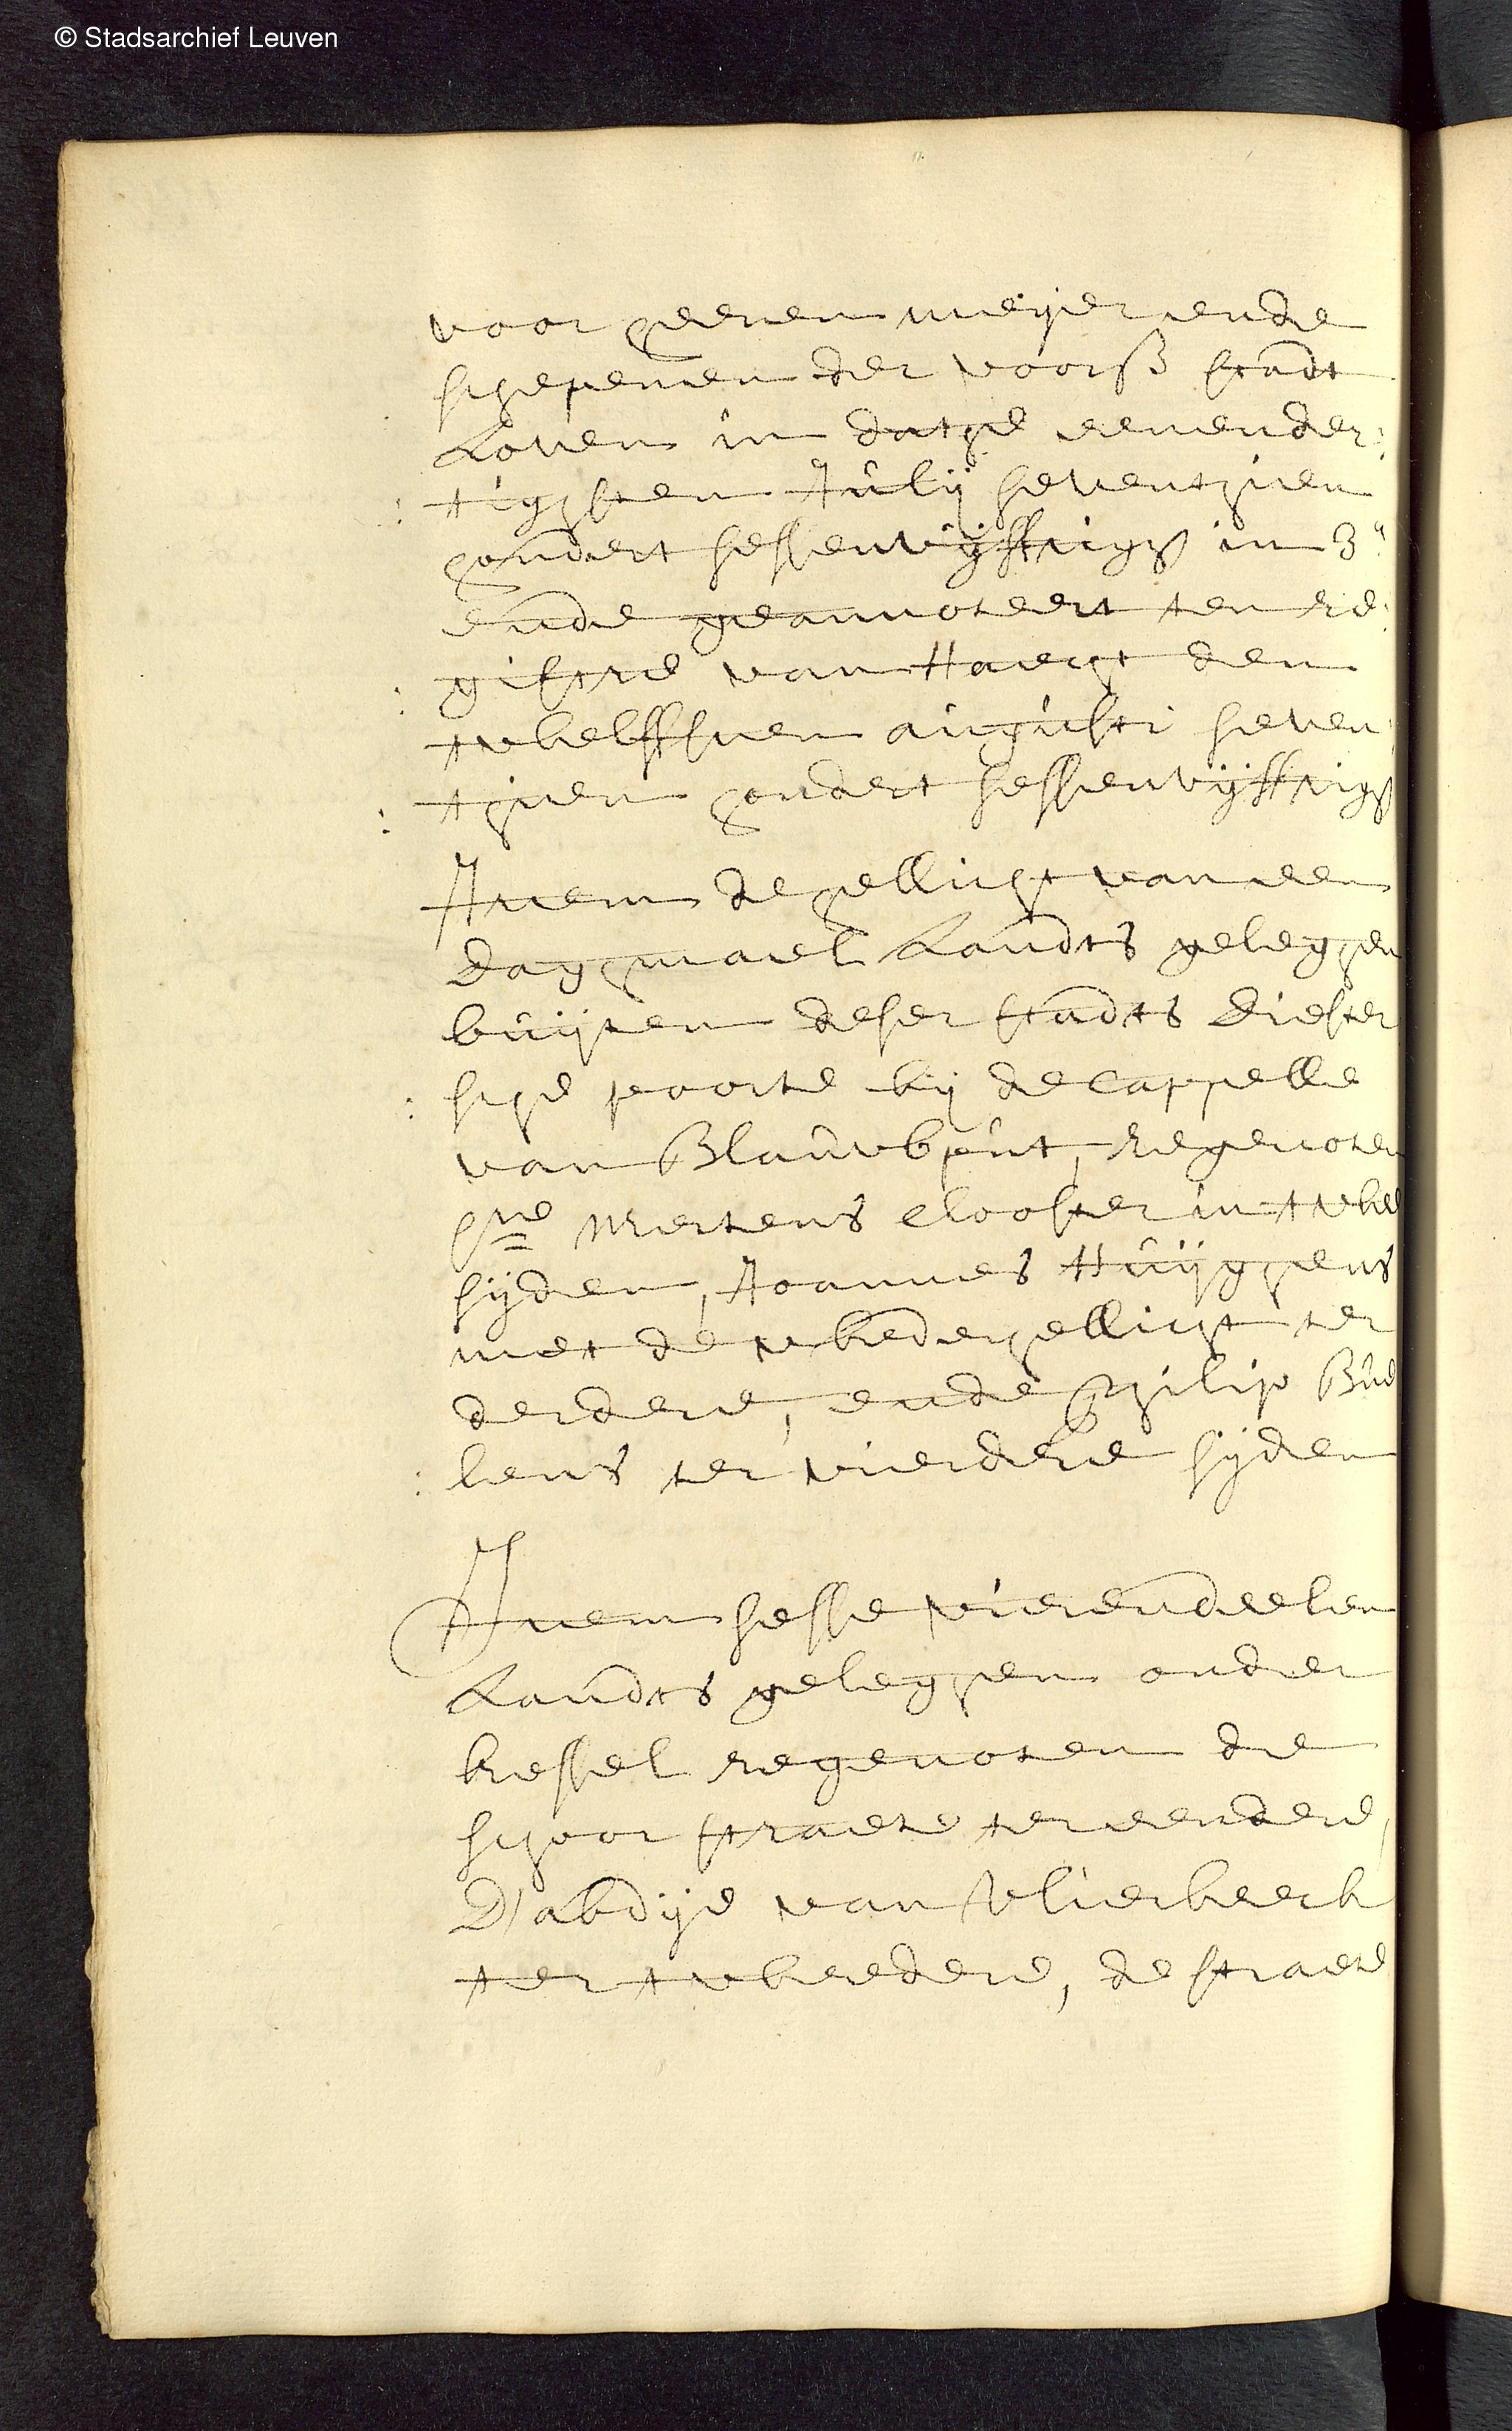 © Stadsarchief Leuven
voor heeren meijer ende
schepenen der voors stadt
Loven in dathe eenender:
: tighsten Julij seventhien
hondert sessenvijfftigh in 3a
ende geannoteert ten re:
: gistre van Haecht den
twelffsten augusti seven:
: thien hondert sessenvijfftigh
Item de hellicht van een
daghmael Landts geleghen
buijten deser stadts Diester
: sche poorte bij de Cappelle
van Blauwput, regenoten
Sinte Mertens clooster in twee
sijden, Joannes Huijghens
met de wederhellicht ter
derdere, ende Philip Bue
: lens ter vierdere sijden
Item sesse vierendeelen
Landts geleghen onder
kessel regenoten die
schoor straete ter eendere,
D'abdije van Vlierbeeck
ter tweedere, de straete